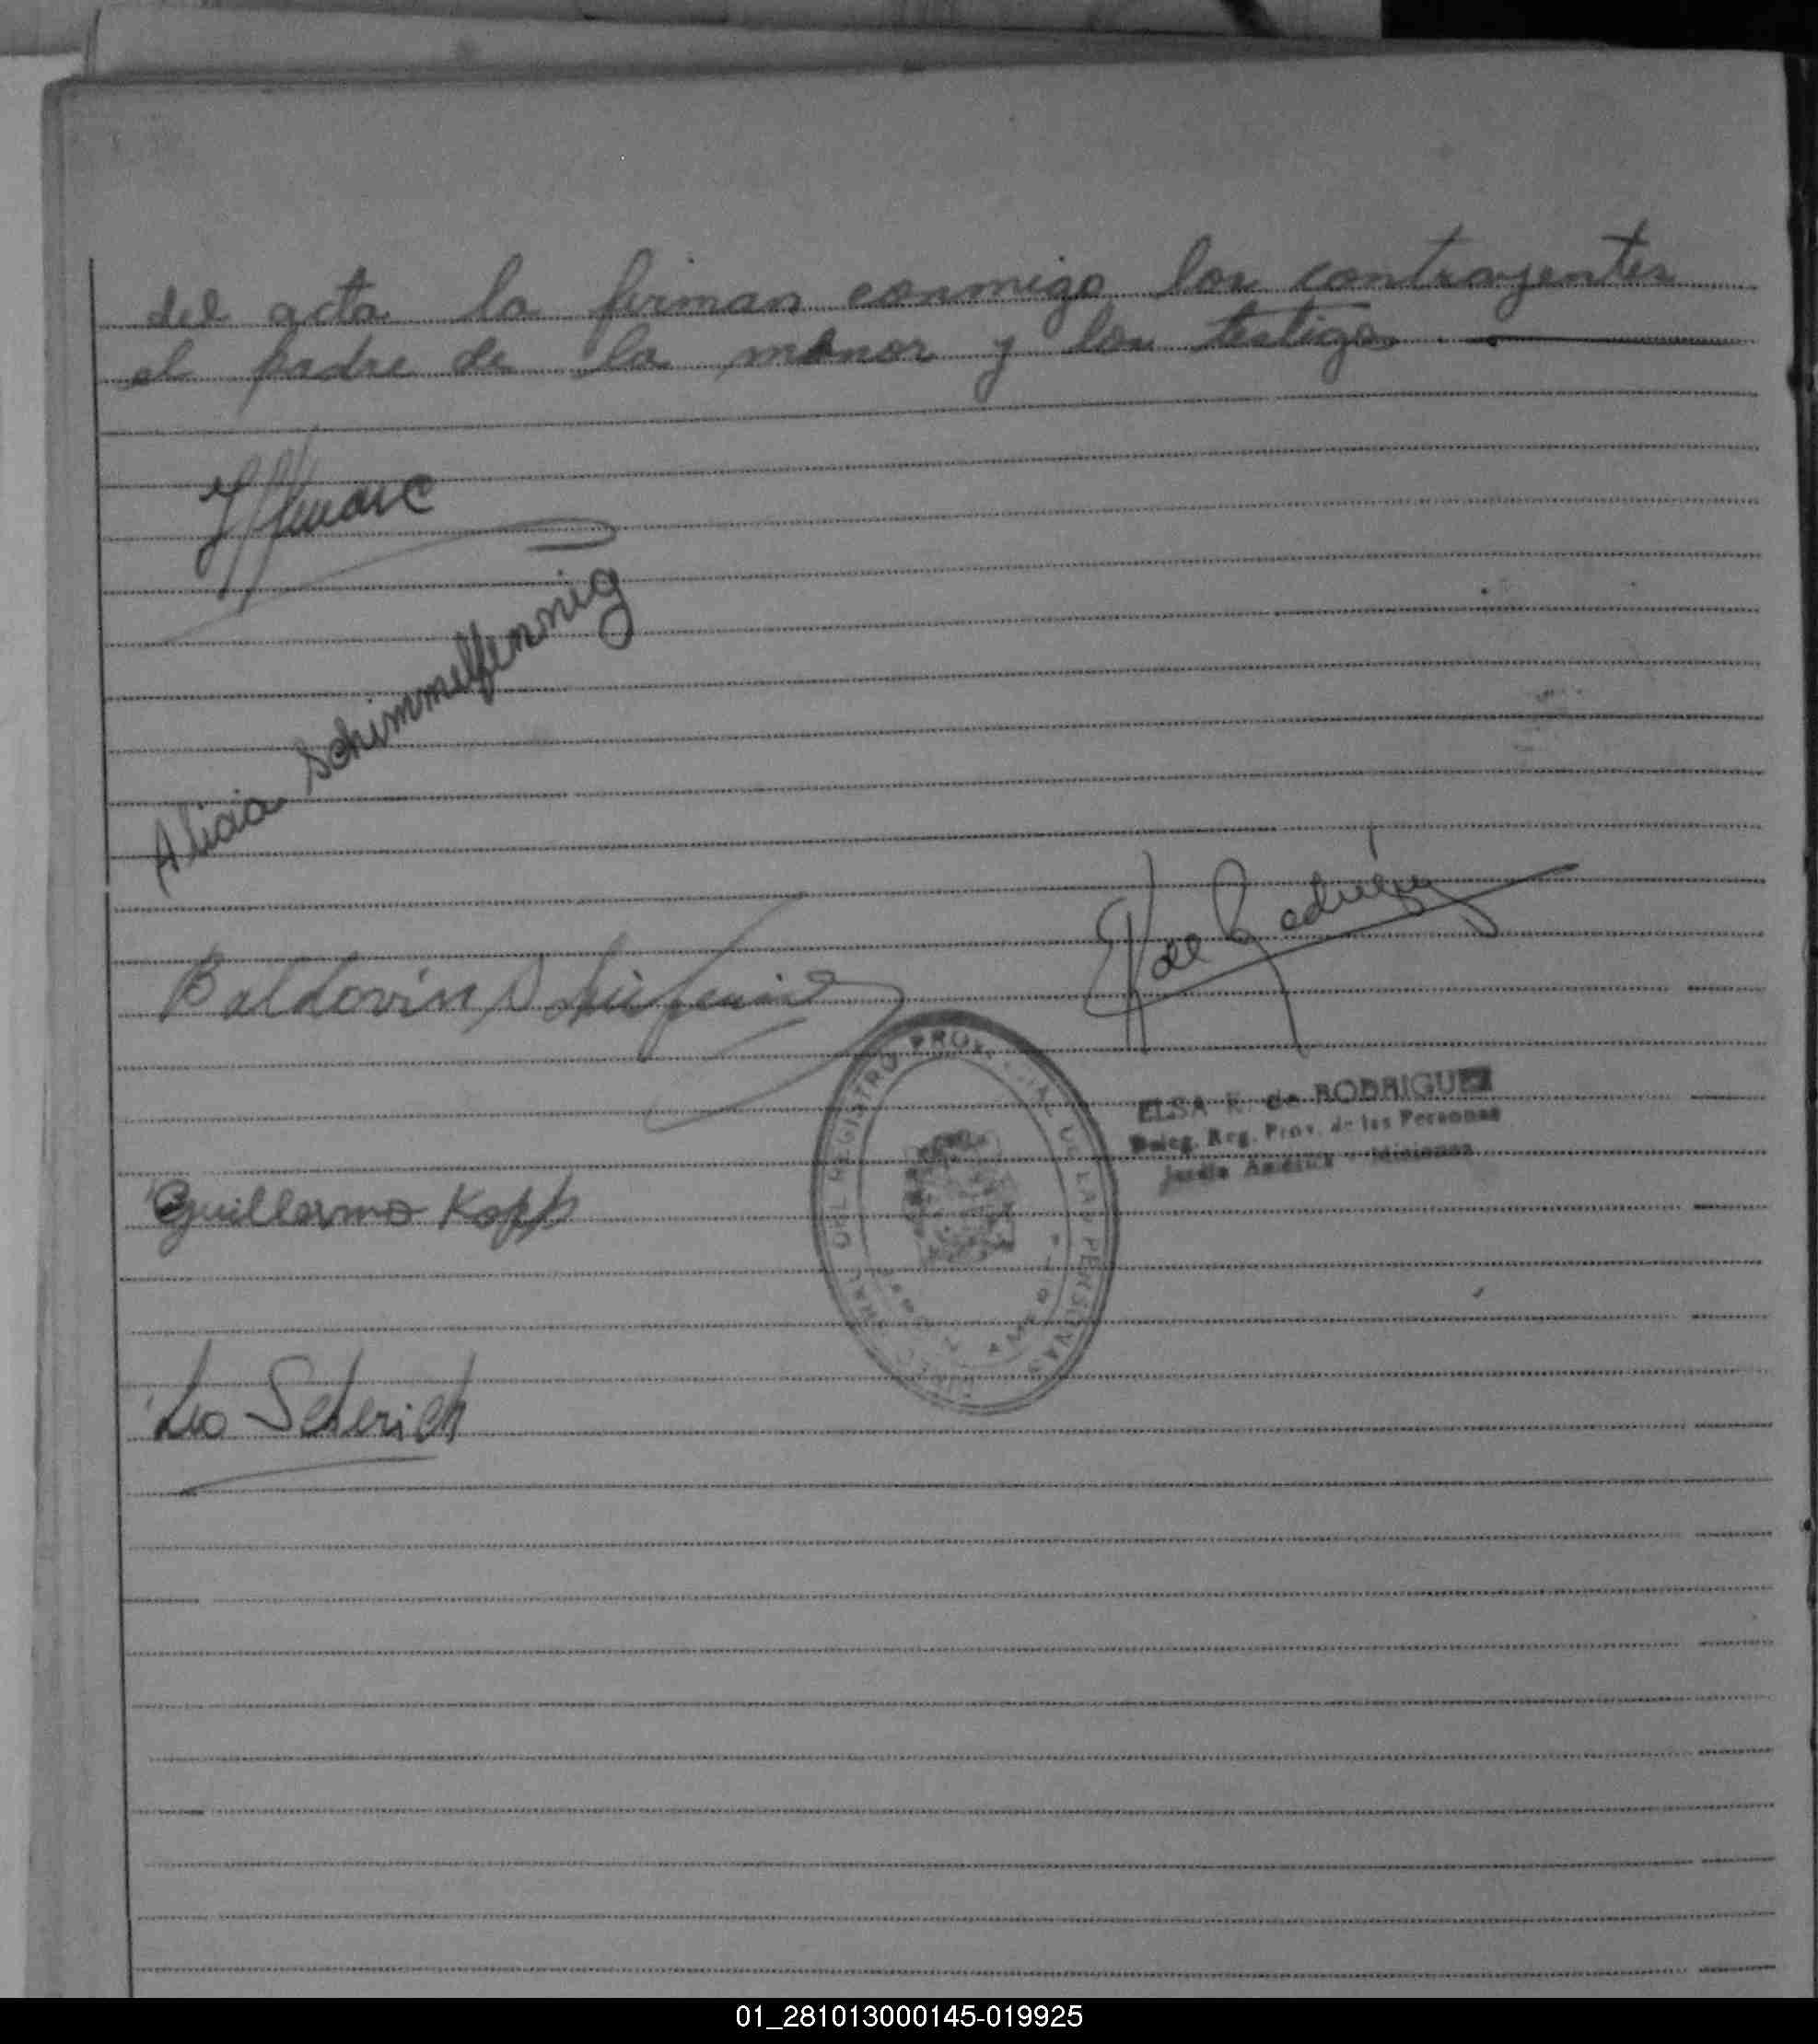 del acta la firman conmigo los contrayentes
el padre de la menor y los testigos.
Alicia Schimmelfennig
Baldovin
Guillermo Kopp
Leo Sederich
ELSA R. de RODRIGUEZ
Deleg. Reg. Prov. de las Personas
Jardín América - Misiones
DEL REGISTRO PROVINCIAL DE LAS PERSONAS
01_281013000145-019925